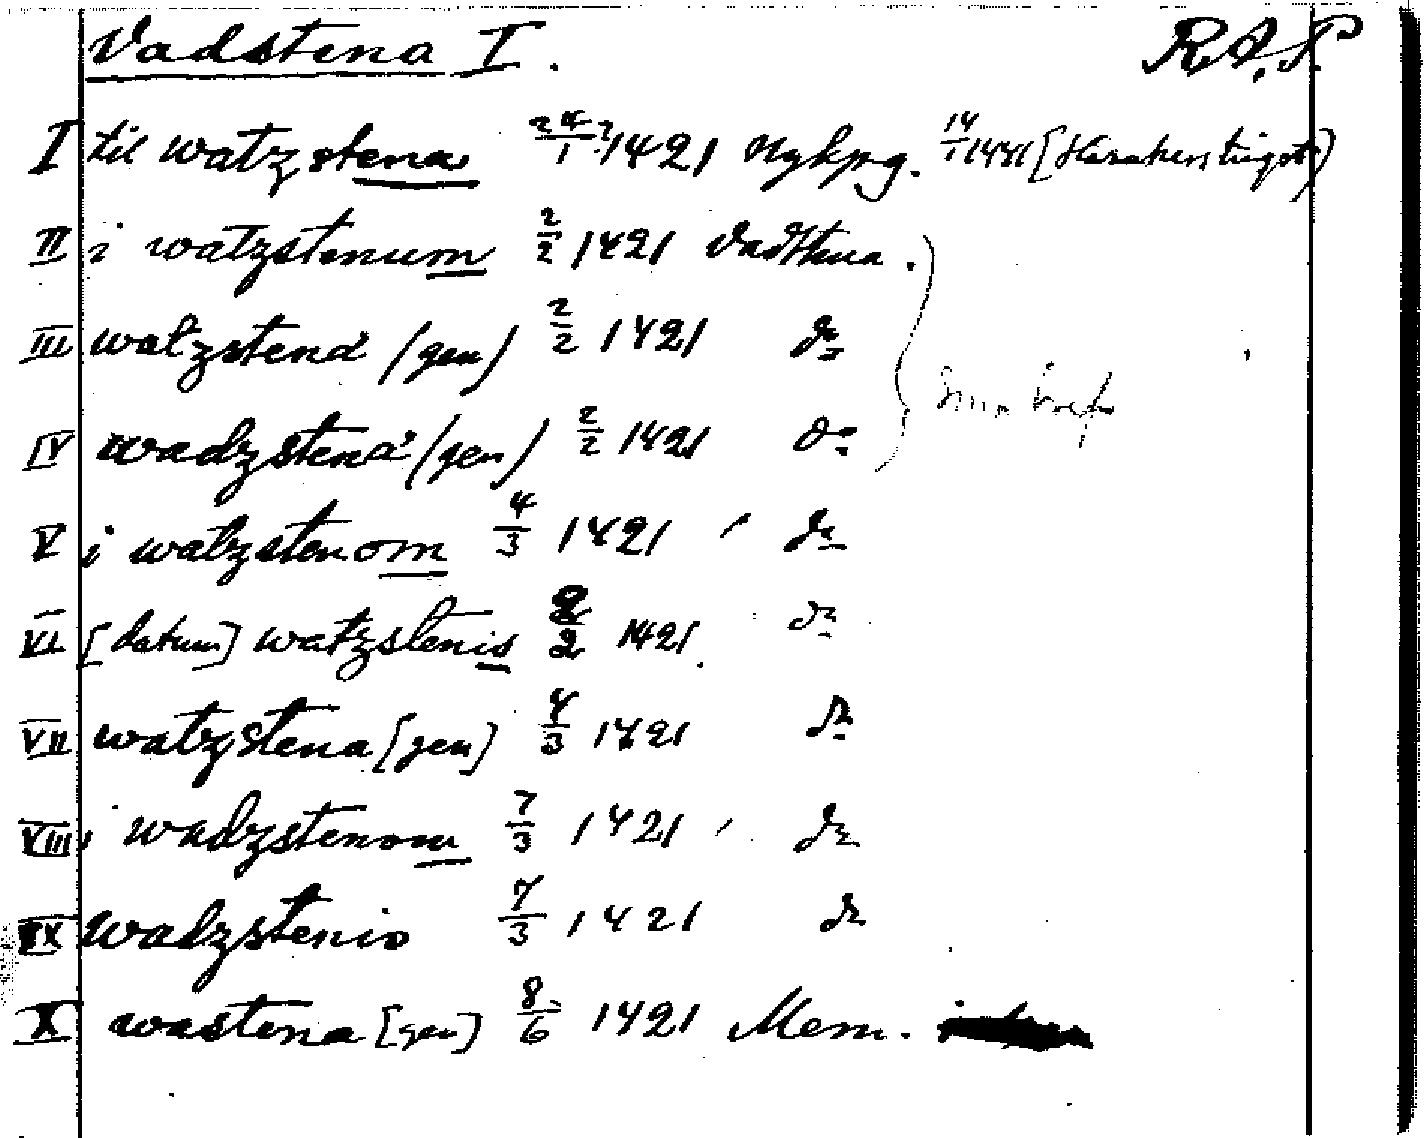 Vadstena I. R.A.P.
I til watzstena 24/1? 1421 Nykpg. 14/1 1441
II i watzstenum 2/2 1421 Vadstena.
III watzstena (gen) 2/2 1421 do
IV wadzstena (gen) 2/2 1421 do
V i watzstenom 4/3 1421 do
VI [datum] watzstenis 2/2 1421. do
VII watzstena [gen] 4/3 1421 do
VIII i wadzstenom 7/3 1421 do
IX wadzstenis 7/3 1421 do
X wastena [gen] 8/6 1421 Mem.